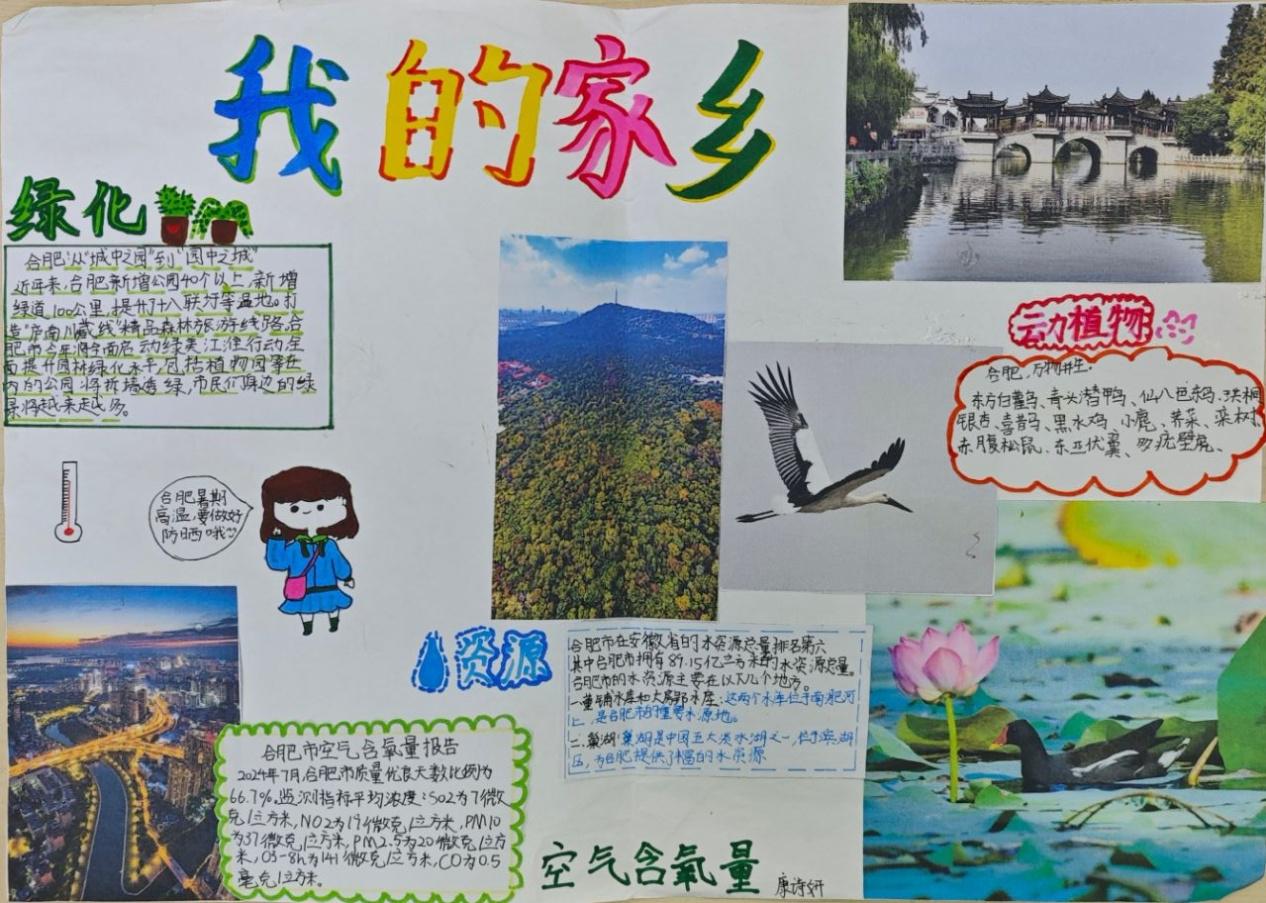 我的家乡
绿化
合肥:从"城中之园"到"园中之城"
近年来,合肥新增公园40个以上,新增
绿道100公里,提升了十八联圩等湿地。打
造"庐南川藏线"精品森林旅游线路,合
肥市今年将全面启动绿美江淮行动,全
面提升园林绿化水平,包括植物园等在
内的公园将拆墙透绿,市民们身边的绿
景将越来越多。
动植物
合肥,万物共生.
东方白鹳、青头潜鸭、仙八色鸫、珙桐
银杏、喜鹊、黑水鸡、小鹿、荠菜、栾树
赤腹松鼠、东亚伏翼、多疣壁虎、
合肥暑期
高温,要做好
防晒哦
资源
合肥市在安徽省的水资源总量排名第六
其中合肥市拥有89.15亿立方米的水资源总量。
合肥市的水资源主要在以下几个地方。
一董铺水库和大房郢水库:这两个水库位于南淝河
上,是合肥的重要水源地。
二.巢湖:巢湖是中国五大淡水湖之一,位于滨湖
,为合肥提供了的水质源
合肥市空气含氧量报告
2024年7月,合肥市质量优良天数比例为
66.7%。监测指标平均浓度:SO2为7微
克/立方米,NO2为19微克/立方米,PM10
为37微克/立方米,PM2.5为20微克/立方
米,O3-8h为141微克/立方米,CO为0.5
毫克/立方米。
空气含氧量
康诗妍